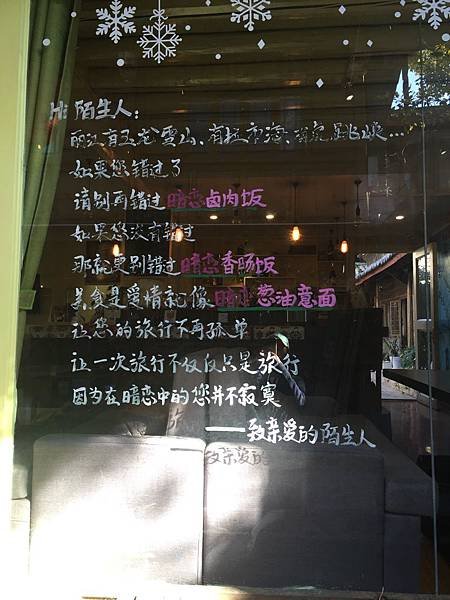 Hi 陌生人:
丽江有玉龙雪山、有拉市海、有虎跳峡...
如果您错过了
请别再错过暗恋卤肉饭
如果您没有错过
那就更别错过暗恋香肠饭
美食是爱情就像暗恋葱油意面
让您的旅行不再孤单
让一次旅行不仅仅只是旅行
因为在暗恋中的您并不寂寞
——致亲爱的陌生人